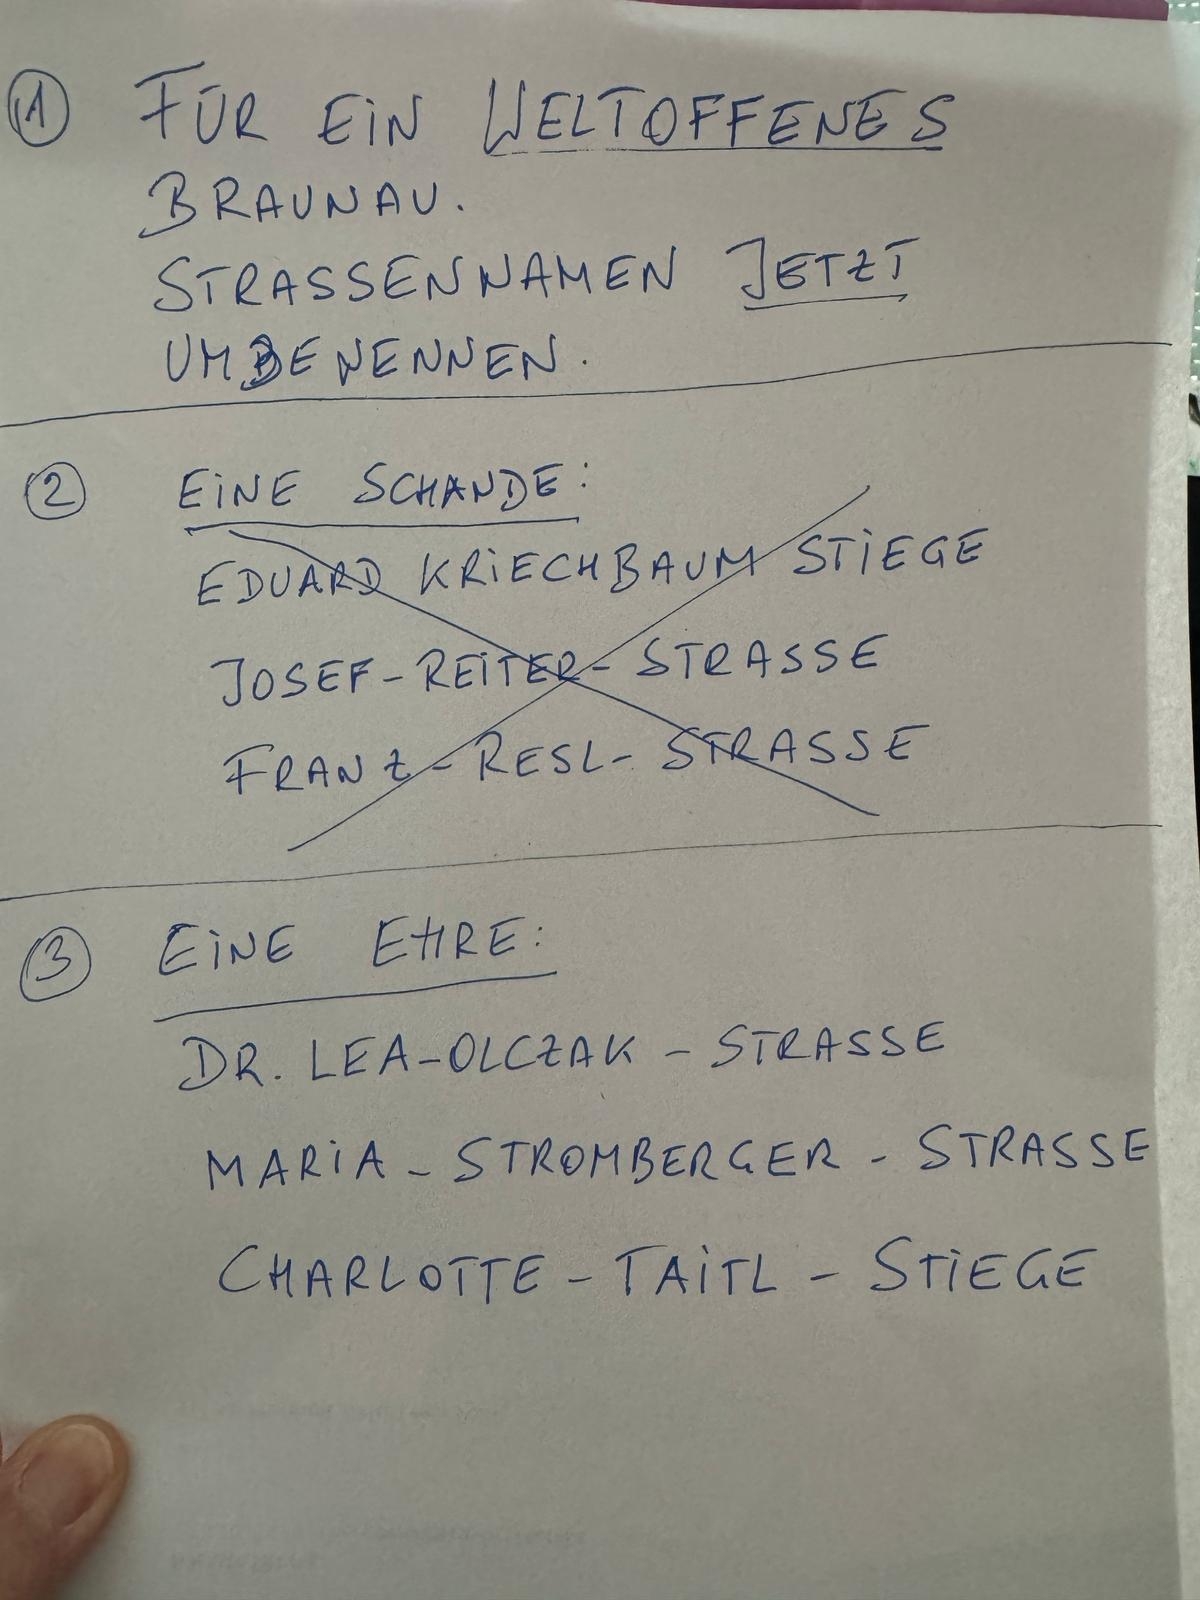 1 FÜR EIN WELTOFFENES
BRAUNAU.
STRASSENNAMEN JETZT
UMBENENNEN.
2 EINE SCHANDE:
EDUARD KRIECHBAUM STIEGE
JOSEF-REITER-STRASSE
FRANZ-RESL-STRASSE
3 EINE EHRE:
DR. LEA-OLCZAK-STRASSE
MARIA-STROMBERGER-STRASSE
CHARLOTTE-TAITL-STIEGE